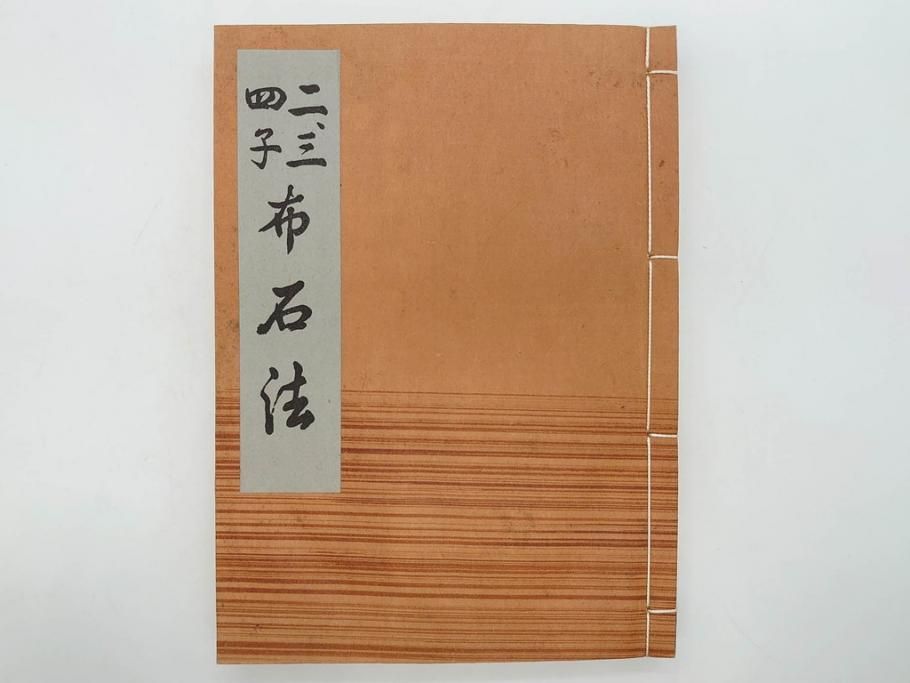 二、三
四子
布石法